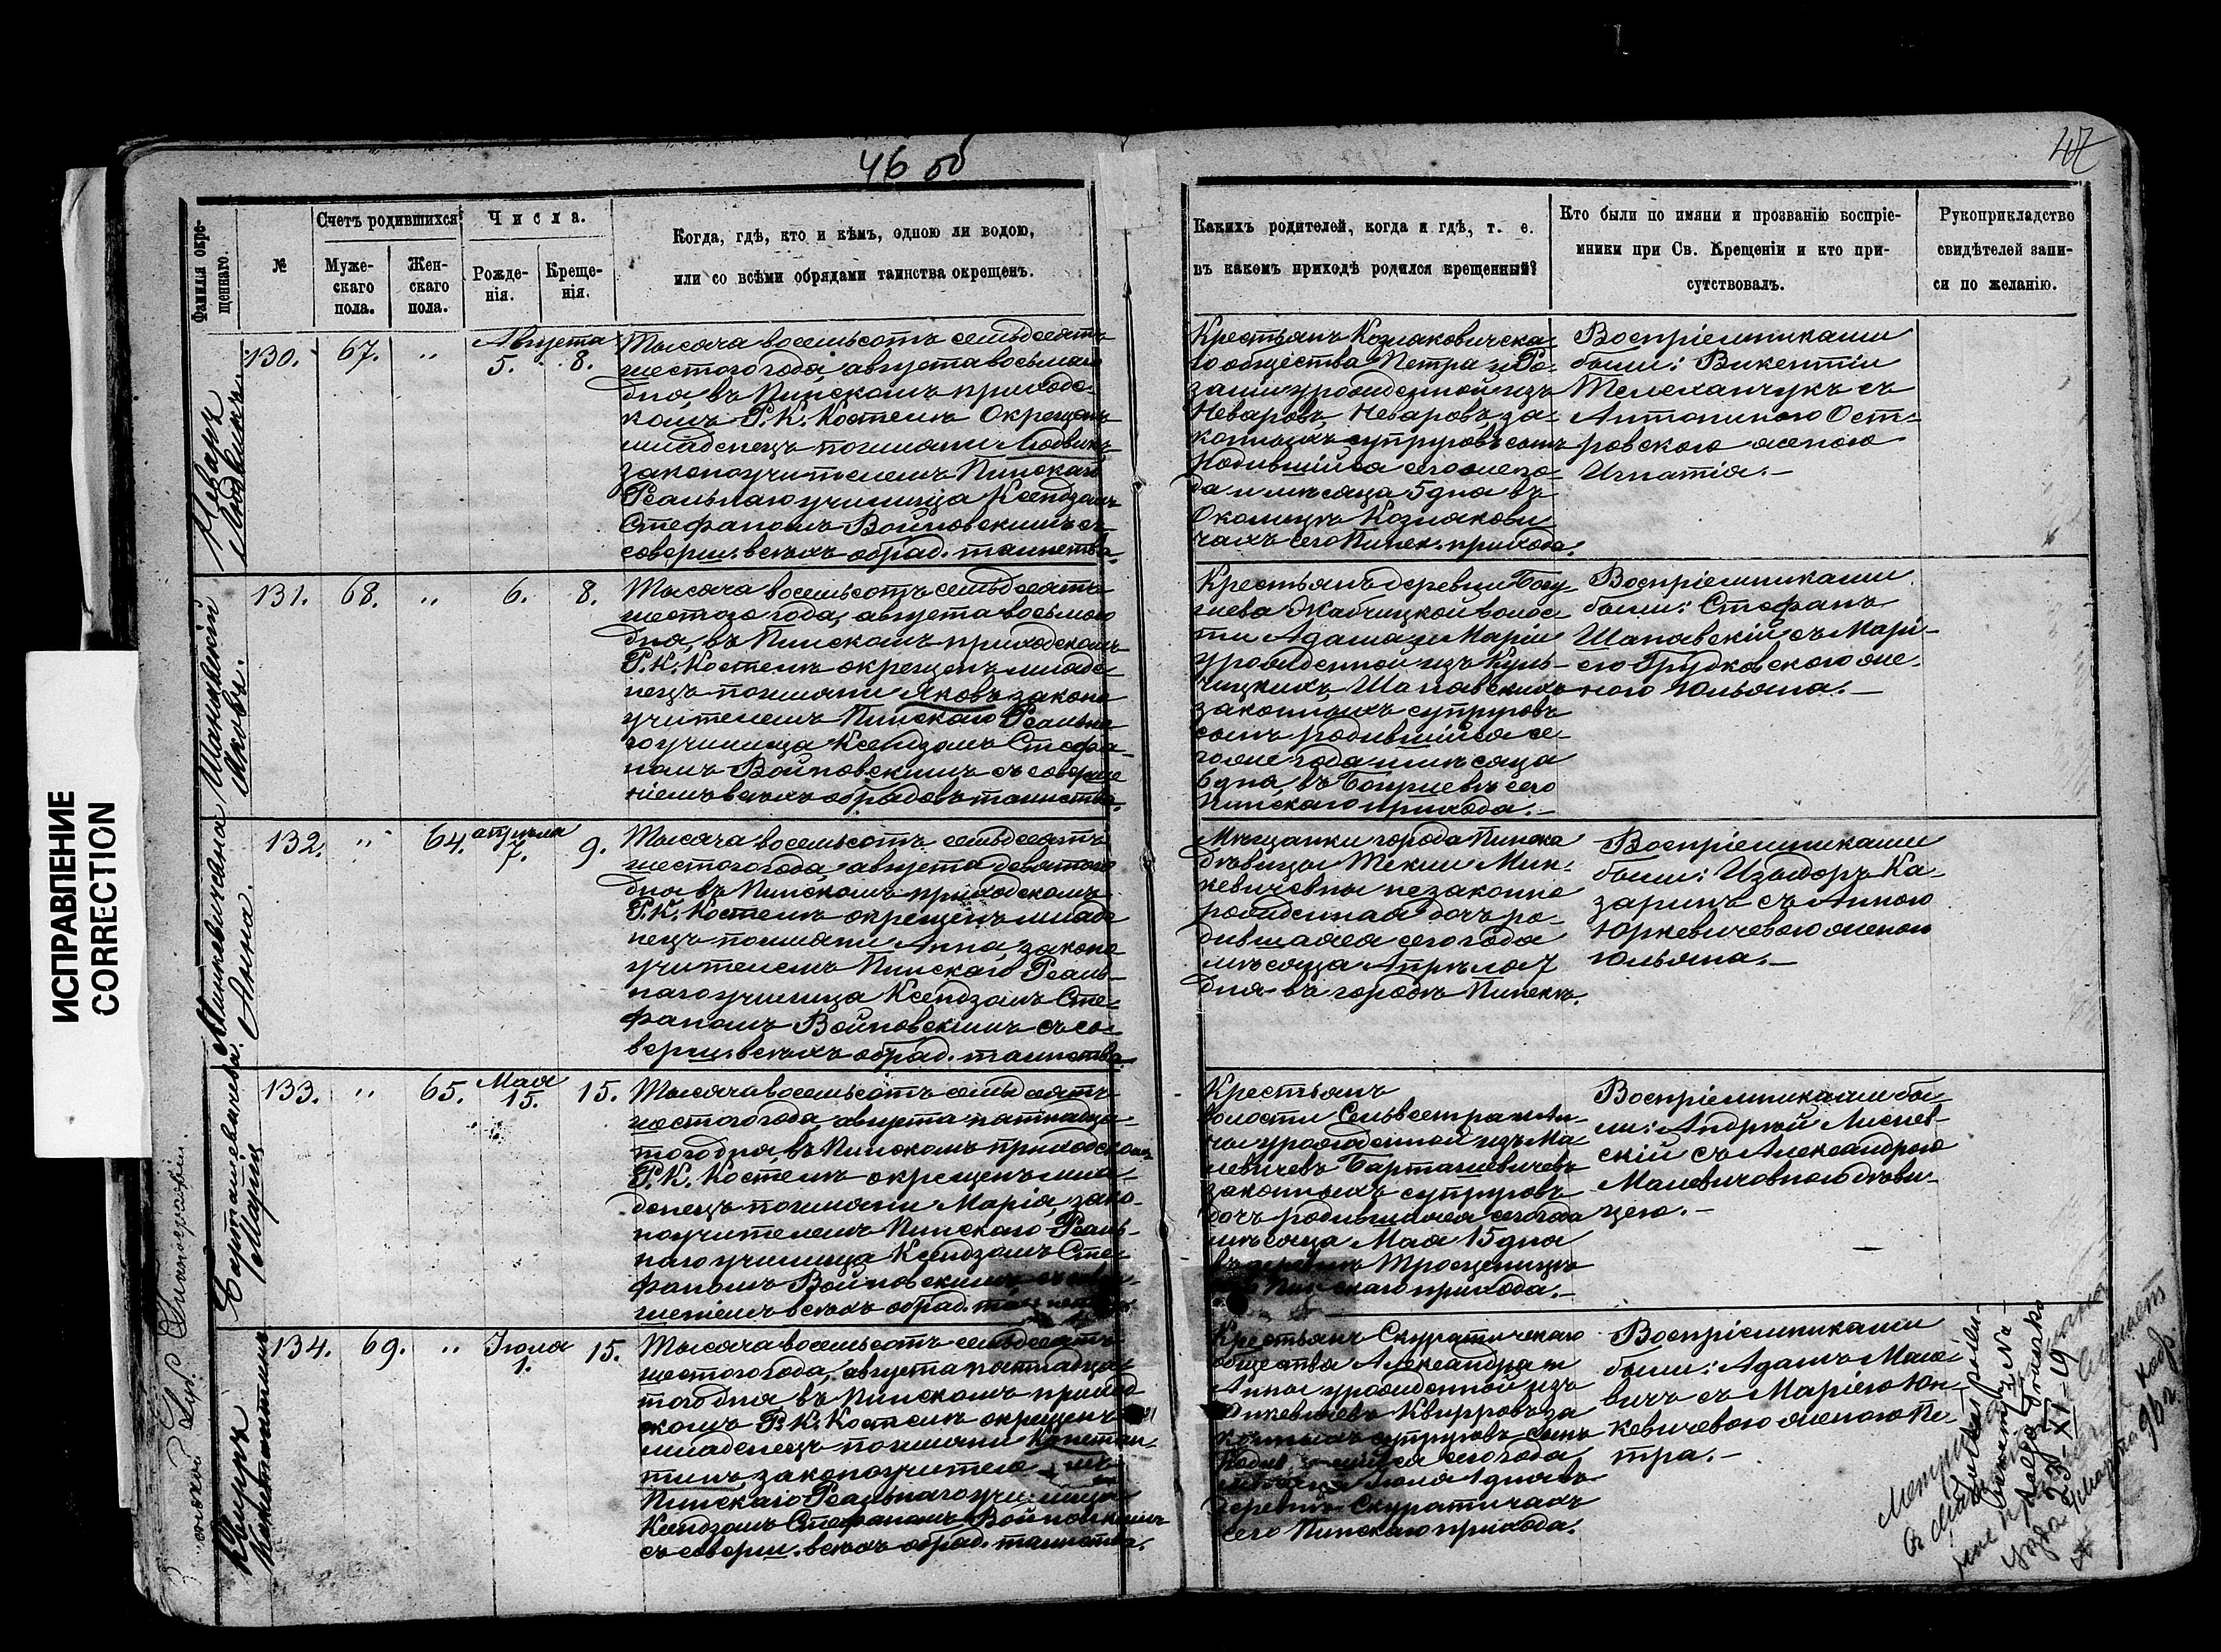 46 об
47
ИСПРАВЛЕНИЕ
CORRECTION
Фамилія окре-
щеннаго.
№
Счетъ родившихся
Муже-
скаго
пола.
Жен-
скаго
пола.
Числа.
Рожде-
нія.
Креще-
нія.
Когда, гдѣ, кто и кѣмъ, одною ли водою,
или со всѣми обрядами таинства окрещенъ.
Какихъ родителей, когда и гдѣ, т. е.
въ какомъ приходѣ родился крещенный?
Кто были по имяни и прозванію воспріе-
мники при Св. Крещеніи и кто при-
сутствовалъ.
Рукоприкладство
свидѣтелей запи-
си по желанію.
Неваръ
Людвикъ
130. 67. " Августа
5. 8.
Тысяча восемьсотъ семьдесятъ
шестого года, августа восьмаго
дня, въ Пинскомъ приход-
комъ Р. К. Костелѣ Окрещенъ
младенецъ по имяни Людвикъ
законоучителемъ Пинскаго
Реальнаго училища Ксендзомъ
Стефаномъ Войновскимъ съ
соверш. всѣхъ обряд. таинства.
Крестьянъ Козляковичска-
го общества Петра и Ро-
заліи урожденной изъ
Неваровъ, Неваровъ, за-
конныхъ супруговъ сынъ
родившійся сего же го-
да и мѣсяца 5 дня въ
Околицѣ Козлякови
чахъ сего Пинск. прихода.
Воспріемниками
были: Викентій
Телеханчукъ съ
Антониною Ост-
ровскою женою
Игнатія.—
Шапавскій
Яковъ.
131. 68. " 6. 8.
Тысяча восемьсотъ семьдесятъ
шестого года, августа восьмого
дня, въ Пинскомъ приходскомъ
Р. К. Костелѣ окрещенъ младе
нецъ по имяни Яковъ законо
учителемъ Пинскаго Реальна
го училища Ксендзомъ Стефа-
номъ Войновскимъ съ соверше
ніемъ всѣхъ обрядовъ таинства.
Крестьянъ деревни Богу-
шева Жабчицкой волос
ти Адама и Маріи
урожденной изъ Куль-
чицкихъ Шапавскихъ
законныхъ супруговъ
сынъ родившійся се-
го же года и мѣсяца
6 дня, въ Богушевѣ сего
Пинскаго прихода.—
Воспріемниками
были: Стефанъ
Шапавскій съ Марі-
ею Грудковскою же-
ною Юльяна.—
Анна.
132. " 64. апрѣля
7. 9.
Тысяча восемьсотъ семьдесятъ
шестого года, августа девятого
дня въ Пинскомъ приходскомъ
Р. К. Костелѣ окрещенъ младе
нецъ по имяни Анна, законо
учителемъ Пинскаго Реаль-
наго училища Ксендзомъ Сте-
фаномъ Войновскимъ съ со-
верш. всѣхъ обряд. таинства.
Мѣщанки города Пинска
дѣвицы Текли Мин-
кевичевны незаконно
рожденная дочь ро-
дившаяся сего года
мѣсяца Апрѣля 7
дня въ городѣ Пинскѣ.
Воспріемниками
были: Изыдоръ Ка-
заринъ съ Анною
Юркевичевою женою
Юльяна.—
Барташевичева
Марія
133. " 65. Мая
15. 15.
Тысяча восемьсотъ семьдесятъ
шестого года, августа пятнадца-
того дня, въ Пинскомъ приходскомъ
Р. К. Костелѣ окрещенъ мла-
денецъ по имяни Марія, зако-
ноучителемъ Пинскаго Реаль-
наго училища Ксендзомъ Сте-
фаномъ Войновскимъ
шеніемъ всѣхъ обряд.
Крестьянъ
волости Сельвестра и Ан-
ны урожденной изъ Ма
левичевъ Барташевичевъ
законныхъ супруговъ
дочь родившаяся сего года
мѣсяца Мая 15 дня
Пинскаго прихода.—
Воспріемниками бы-
ли: Андрей
съ Александрою
Малевичовною дѣви-
цею.—
Квирръ
Константинъ
134. 69. " Іюля
1. 15.
Тысяча восемьсотъ семьдесятъ
шестого года, августа пятнадца-
того дня, въ Пинскомъ приход
скомъ Р. К. Костелѣ окрещенъ
младенецъ по имяни Констан-
тинъ законоучителемъ
Пинскаго Реальнаго училища
Ксендзомъ Стефаномъ Войновскимъ
съ соверш. всѣхъ обряд. таинства.
Крестьянъ Скуратичскаго
общества Александра и
Анны урожденной изъ
Квирровъ за
конныхъ супруговъ сынъ
сего года
Іюля 1 дня въ
деревнѣ Скуратичахъ
сего Пинскаго прихода.
Воспріемниками
были: Адамъ Мале-
вичъ съ Маріею Юн-
кевичевою женою Пе-
тра.—
23-XI-19